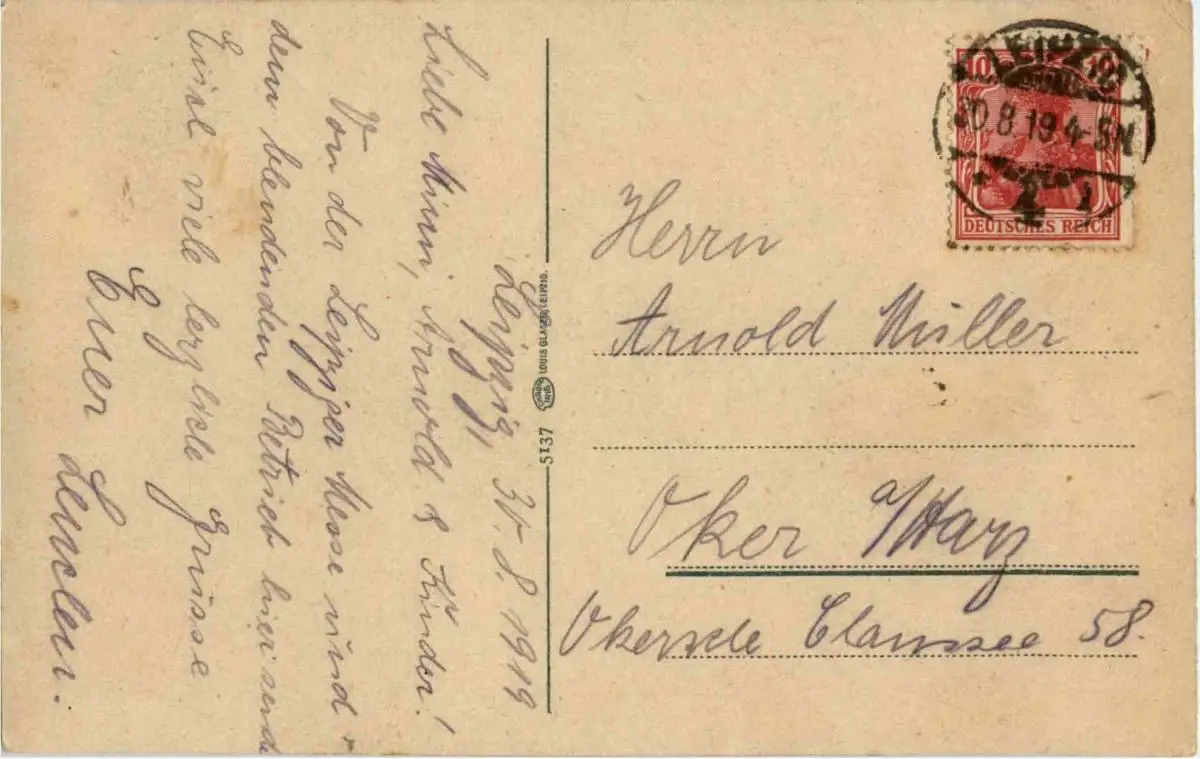 Leipzig, 30.8.1919
Liebe Minni, Arnold & Kinder!
Von der Leipziger Messe und
dem blendenden Betrieb hier sende
Euch viele herzliche Grüsse
Euer
LOUIS GLASER, LEIPZIG.
5137
LEIPZIG
30.8.19.4-5N
4
10
10
DEUTSCHES REICH
Herrn
Arnold Müller
Oker a/Harz
Chaussee 58.